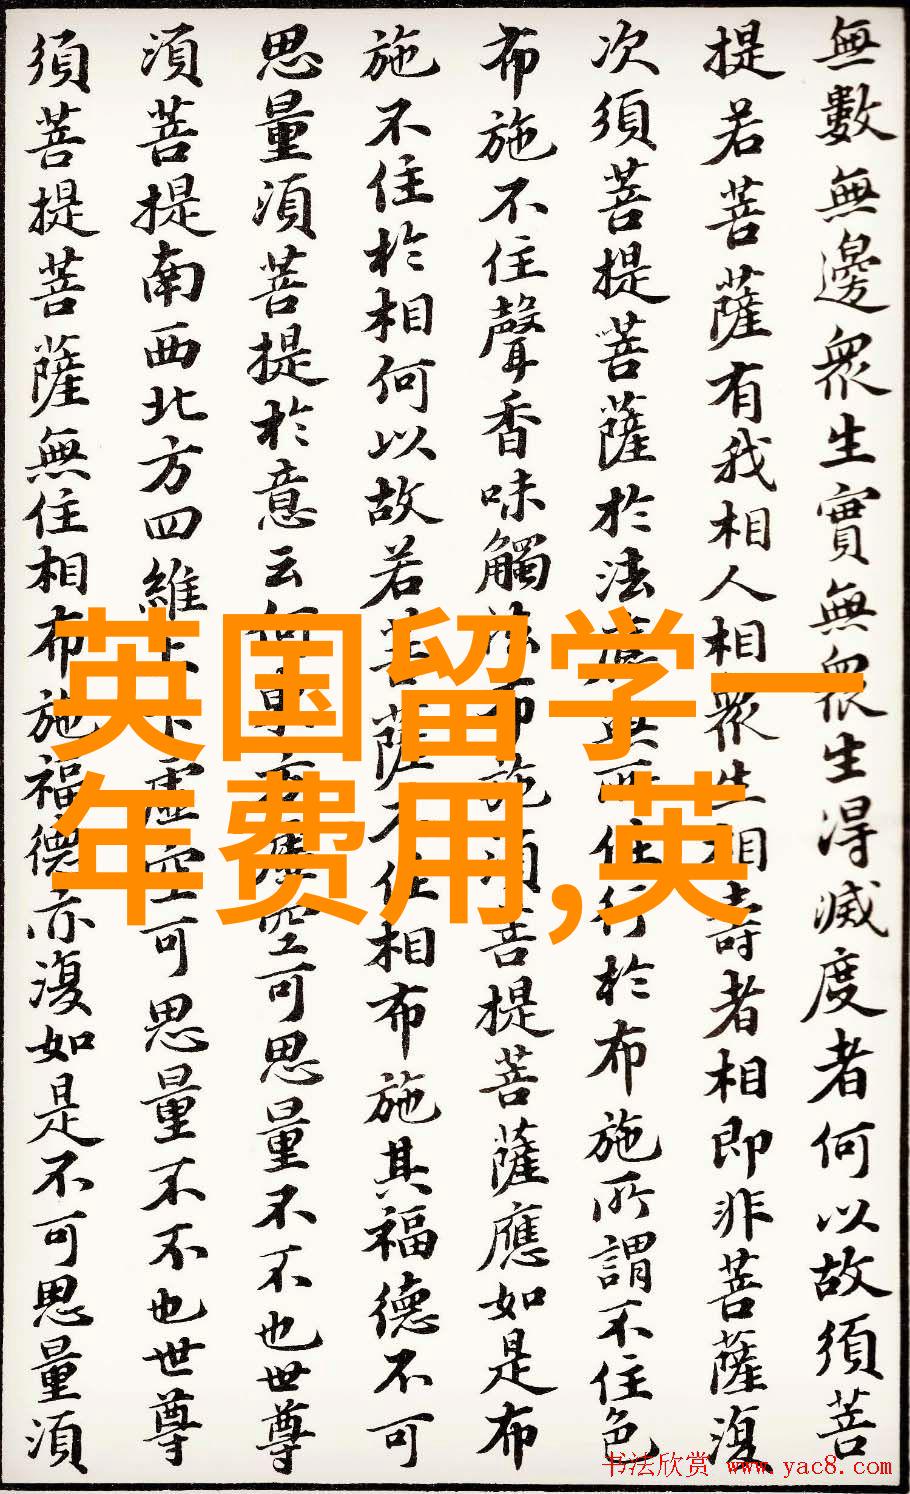 無數無邊衆生實無衆生得滅度者何以故須菩
提若菩薩有我相人相衆生相壽者相即非菩薩復
次須菩提菩薩於法應無所住行於布施所謂不住色
布施不住聲香味觸法布施須菩提菩薩應如是布
施不住於相何以故若菩薩不住相布施其福德不可
思量須菩提於意云何東方虛空可思量不不也世尊
須菩提南西北方四維上下虛空可思量不不也世尊
須菩提菩薩無住相布施福德亦復如是不可思量須
英国留学一
年费用,英
书法欣赏 www.yac8.com